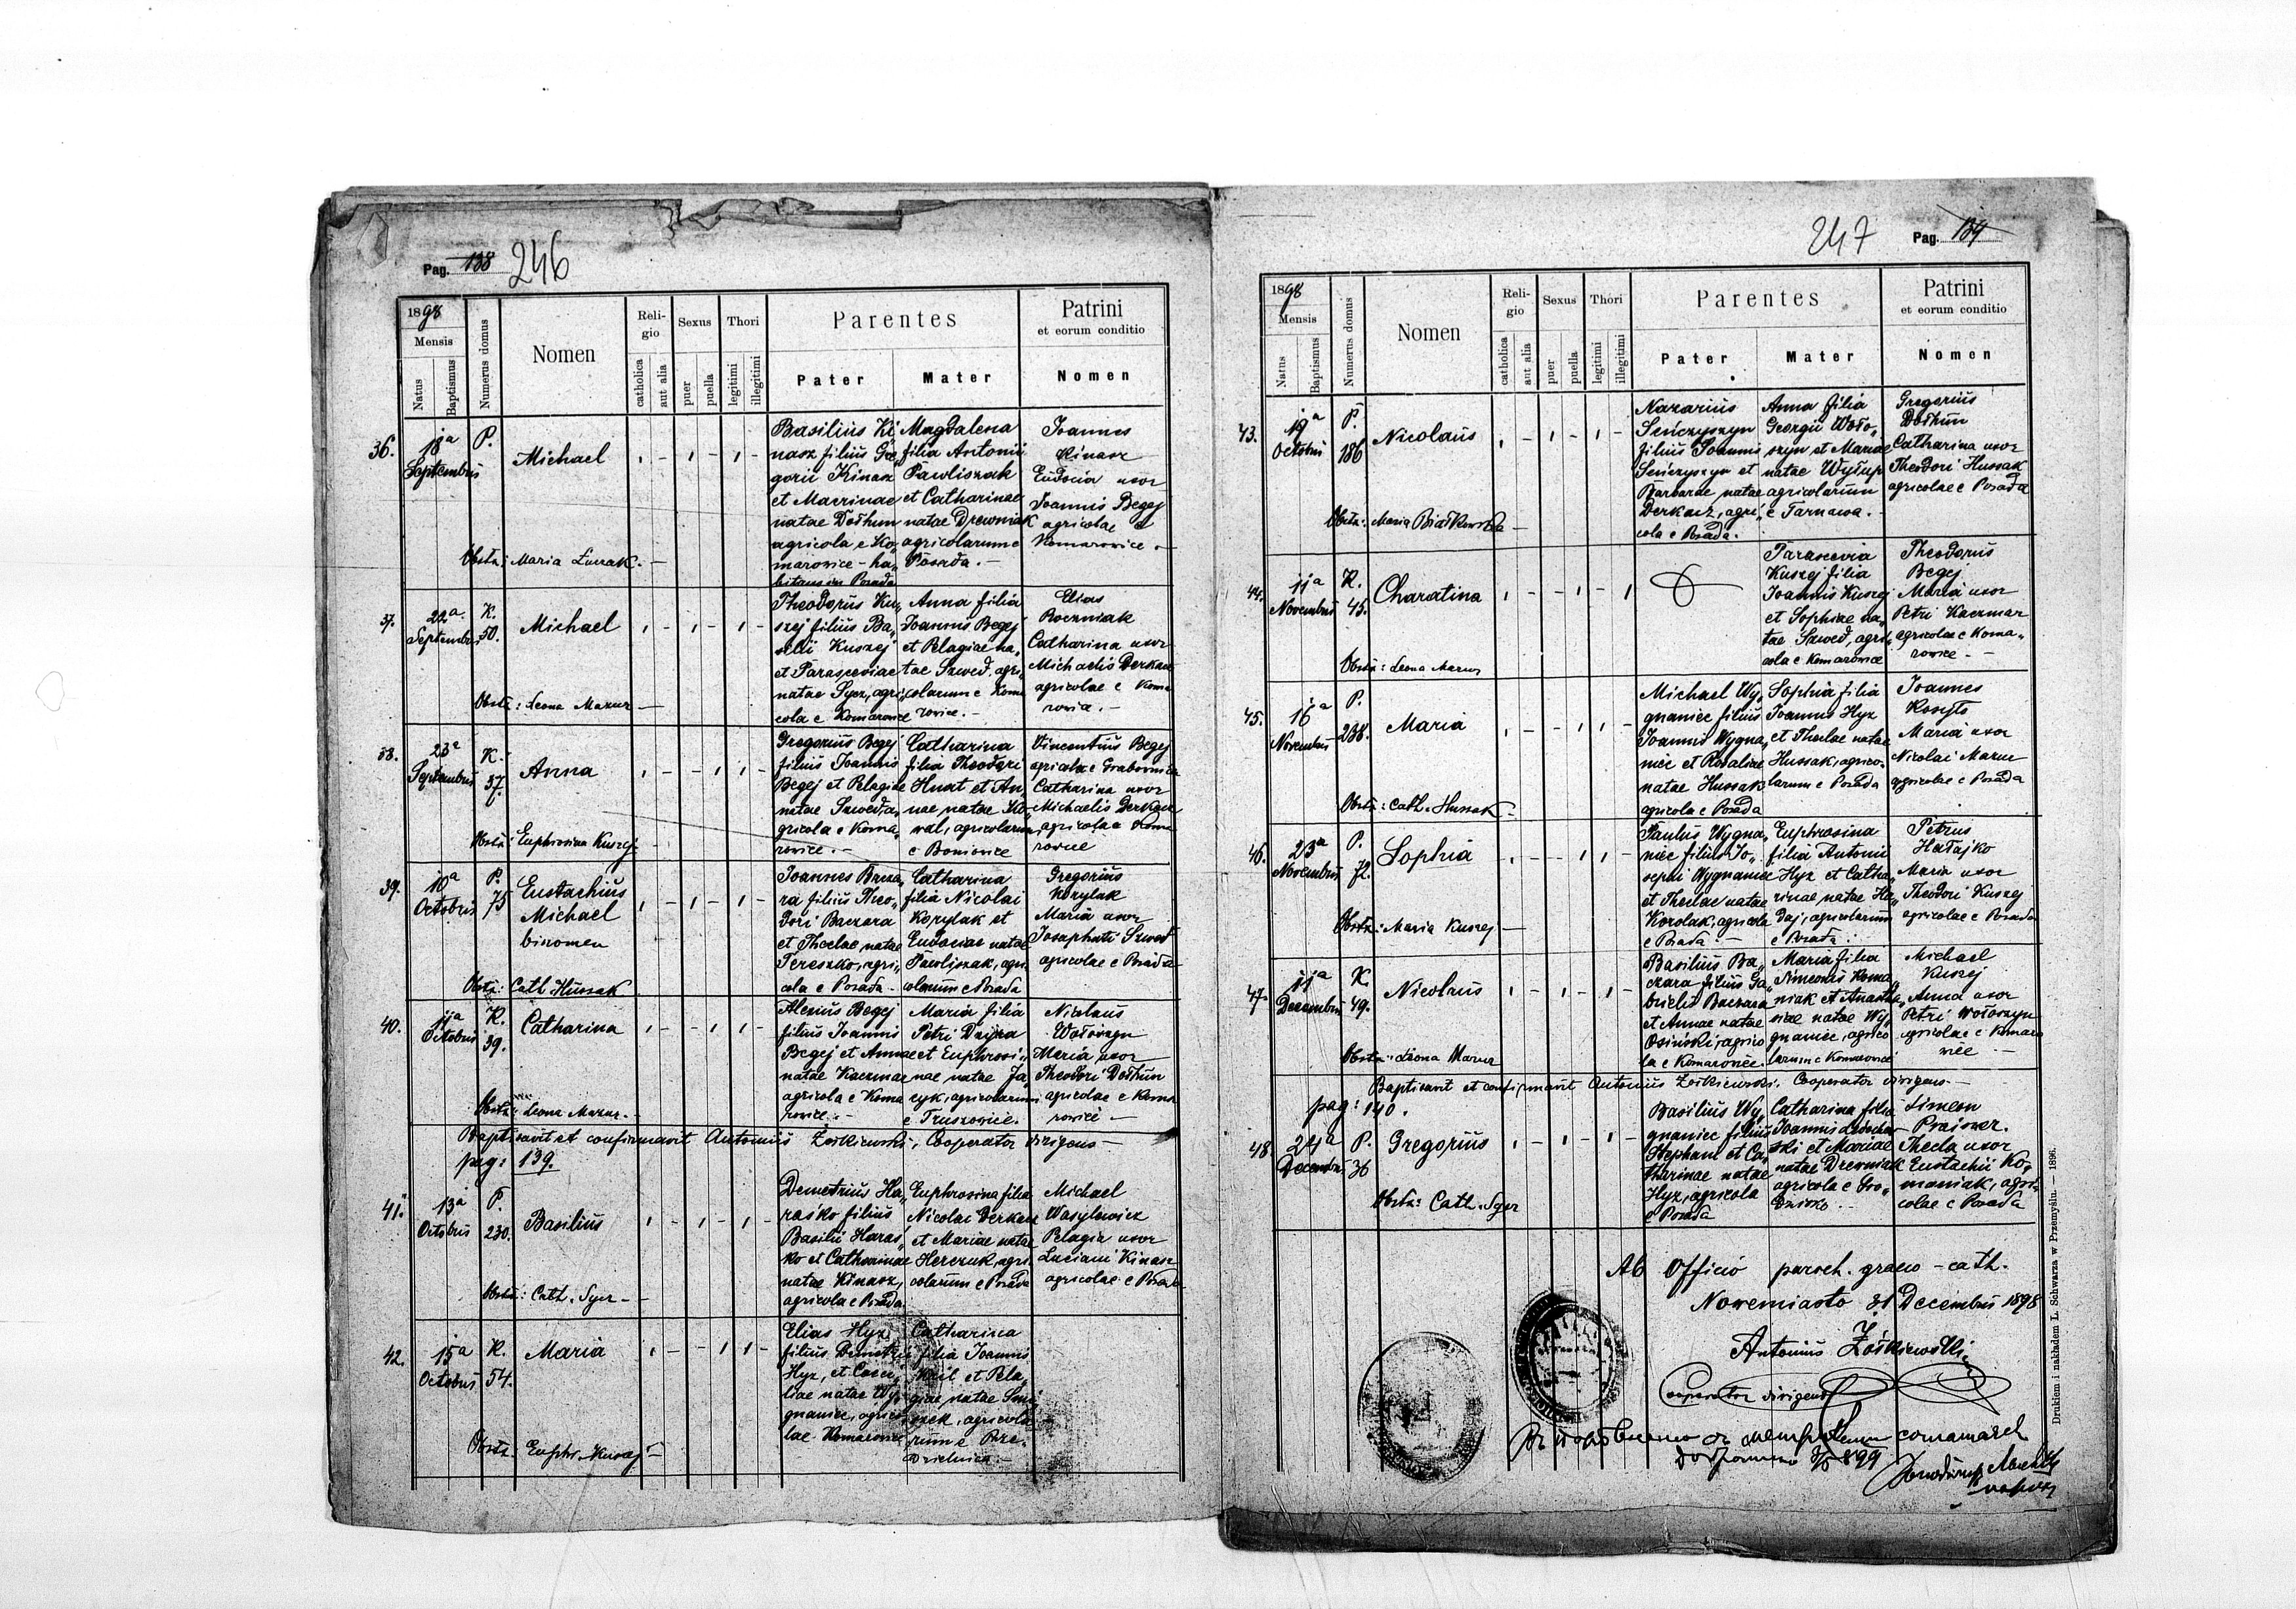 Pag. 138 246
1898
Mensis
Natus
Baptismus
Numerus domus
Nomen
Reli-
gio
catholica
aut alia
Sexus
puer
puella
Thori
legitimi
illegitimi
Parentes
Pater
Mater
Patrini
et eorum conditio
Nomen
36. 18a Septembris P. Michael
Basilius Ki„
nasz filius Gre„
gorii Kinasz
et Macrinae
natae Dołhun
agricola e Ko„
marowice - ha„
bitans in Posada
Magdalena
filia Antonii
Pawliszak
et Catharinae
natae Drewniak
agricolarum e
Posada. -
Joannes
Kinasz
Eudocia uxor
Joannis Begej
agricolae e
Komarowice. -
Obstx: Maria Łuczak. -
37. 22a Septembris K. 50. Michael
Theodorus Ku„
szej filius Ba„
silii Kuszej
et Parasceviae
natae Sycz, agri„
cola e Komarowice
Anna filia
Joannis Begej
et Pelagiae na„
tae Szwed, agri„
colarum e Koma
rowice. -
Elias
Roczniak
Catharina uxor
Michaelis Derkacz
agricolae e Koma
rowice. -
Obstx: Leona Mazur -
38. 23a Septembris K. 37. Anna
Gregorius Begej
filius Joannis
Begej et Pelagiae
natae Szwed, a„
gricola e Koma„
rowice. -
Catharina
filia Theodori
Hunt et An„
nae natae Ko„
wal, agricolarum
e Boniowice
Vincentius Begej
agricola e Grabownica
Catharina uxor
Michaelis Derkacz
agricolae e Koma
rowice
Obstx: Euphrosina Kuszej -
39. 10a Octobris P. 75 Eustachius
Michael
binomen
Joannes Bacza„
ra filius Theo„
dori Baczara
et Theclae natae
Tereszko, agri„
cola e Posada -
Catharina
filia Nicolai
Korylak et
Eudociae natae
Pawliszak, agri
colarum e Posada
Gregorius
Korylak
Maria uxor
Josaphati Szwed
agricolae e Posada
Obstx: Cath. Hussak
40. 11a Octobris K. 39. Catharina
Alexius Begej
filius Joannis
Begej et Annae
natae Kaczmar
agricola e Koma
rowice. -
Maria filia
Petri Dzijka
et Euphrosi„
nae natae Ja„
cyk, agricolarum
e Truszowice.
Nicolaus
Wołoszyn
Maria uxor
Theodori Dołhun
agricolae e Koma
rowice -
Obstx: Leona Mazur. -
Baptisavit et confirmavit Antonius Żółkiewski, Cooperator dirigens -
pag: 139.
41. 13a Octobris P. 230. Basilius
Demetrius Ha„
raśko filius
Basilii Haraś„
ko et Catharinae
natae Kinasz,
agricola e Posada
Euphrosina filia
Nicolai Derkacz
et Mariae natae
Herczuk, agri„
colarum e Posada
Michael
Wasylewicz
Pelagia uxor
Luciani Kinasz
agricolae e Posada
Obstx: Cath. Sycz -
42. 15a Octobris K. 54. Maria
Elias Hyz,
filius Demetrii
Hyz, et Caeci„
liae natae Wy„
gnaniec, agrico
lae Komarowice
Catharina
filia Joannis
et Pela„
giae natae
agricola„
rum e Prze„
dzielnica -
Obstx: Euphr. Kuszej -
247 Pag. 139
1898
Mensis
Natus
Baptismus
Numerus domus
Nomen
Reli-
gio
catholica
aut alia
Sexus
puer
puella
Thori
legitimi
illegitimi
Parentes
Pater
Mater
Patrini
et eorum conditio
Nomen
43. 19a Octobris P. 186 Nicolaus
Nazarius
Seńczyszyn
filius Joannis
Seńczyszyn et
Barbarae natae
Derkacz, agri„
cola e Posada.
Anna filia
Georgii Woło„
szyn et Mariae
natae Wysłup
agricolarum
e Tarnawa. -
Gregorius
Dołhun
Catharina uxor
Theodori Hussak
agricolae e Posada
Obstx: Maria Białkowska -
44. 11a Novembris K. 45. Charatina
Parascevia
Kuszej filia
Joannis Kuszej
et Sophiae na„
tae Szwed, agri„
cola e Komarowice
Theodorus
Begej
Maria uxor
Petri Kaczmar
agricolae e Koma„
rowice. -
Obstx: Leona Mazur
45. 16a Novembris P. 238. Maria
Michael Wy„
gnaniec filius
Joannis Wygna„
niec et Rosaliae
natae Hussak
agricola e Posada
Sophia filia
Joannis Hyz
et Theclae natae
Hussak, agrico„
larum e Posada
Joannes
Koszyło
Maria uxor
Nicolai Mazur
agricolae e Posada
Obstx: Cath. Hussak -
46. 23a Novembris P. 72. Sophia
Paulus Wygna„
niec filius Jo„
sephi Wygnaniec
et Theclae natae
Korolak, agricola
e Posada. -
Euphrosina
filia Antonii
Hyz et Catha„
rinae natae Ha„
daj, agricolarum
e Posada.
Petrus
Hałajko
Maria uxor
Theodori Kuszej
agricolae e Posada
Obstx: Maria Kuszej -
47. 11a Decembris K. 49. Nicolaus
Basilius Ba„
czara filius Ga„
brielis Baczara
et Annae natae
Osiński, agrico
la e Komarowice.
Maria filia
Simeonis Roma„
niak et Anasta„
siae natae Wy„
gnaniec, agrico
larum e Komarowice
Michael
Kuszej
Anna uxor
Petri Wołoszyn
agricolae e Komaro
wice -
Obstx: Leona Mazur
Baptisavit et confirmavit Antonius Żółkiewski, Cooperator dirigens -
pag: 140.
48. 24a Decembris P. 36 Gregorius
Basilius Wy„
gnaniec filius
Stephani et Ca„
tharinae natae
Hyz, agricola
e Posada
Catharina filia
Joannis
ski et Mariae
natae Drewniak
agricola e Gro„
dzisko. -
Simeon
Preisner.
Thecla uxor
Eustachii Ro„
maniak, agri„
colae e Posada
Obstx: Cath. Sycz
Ab Officio paroch. graeco - cath.
Novemiasto 31 Decembris 1898
Antonius Żółkiewski
Cooperator dirigens
899
Drukiem i nakładem L. Schwarza w Przemyślu. — 1896.